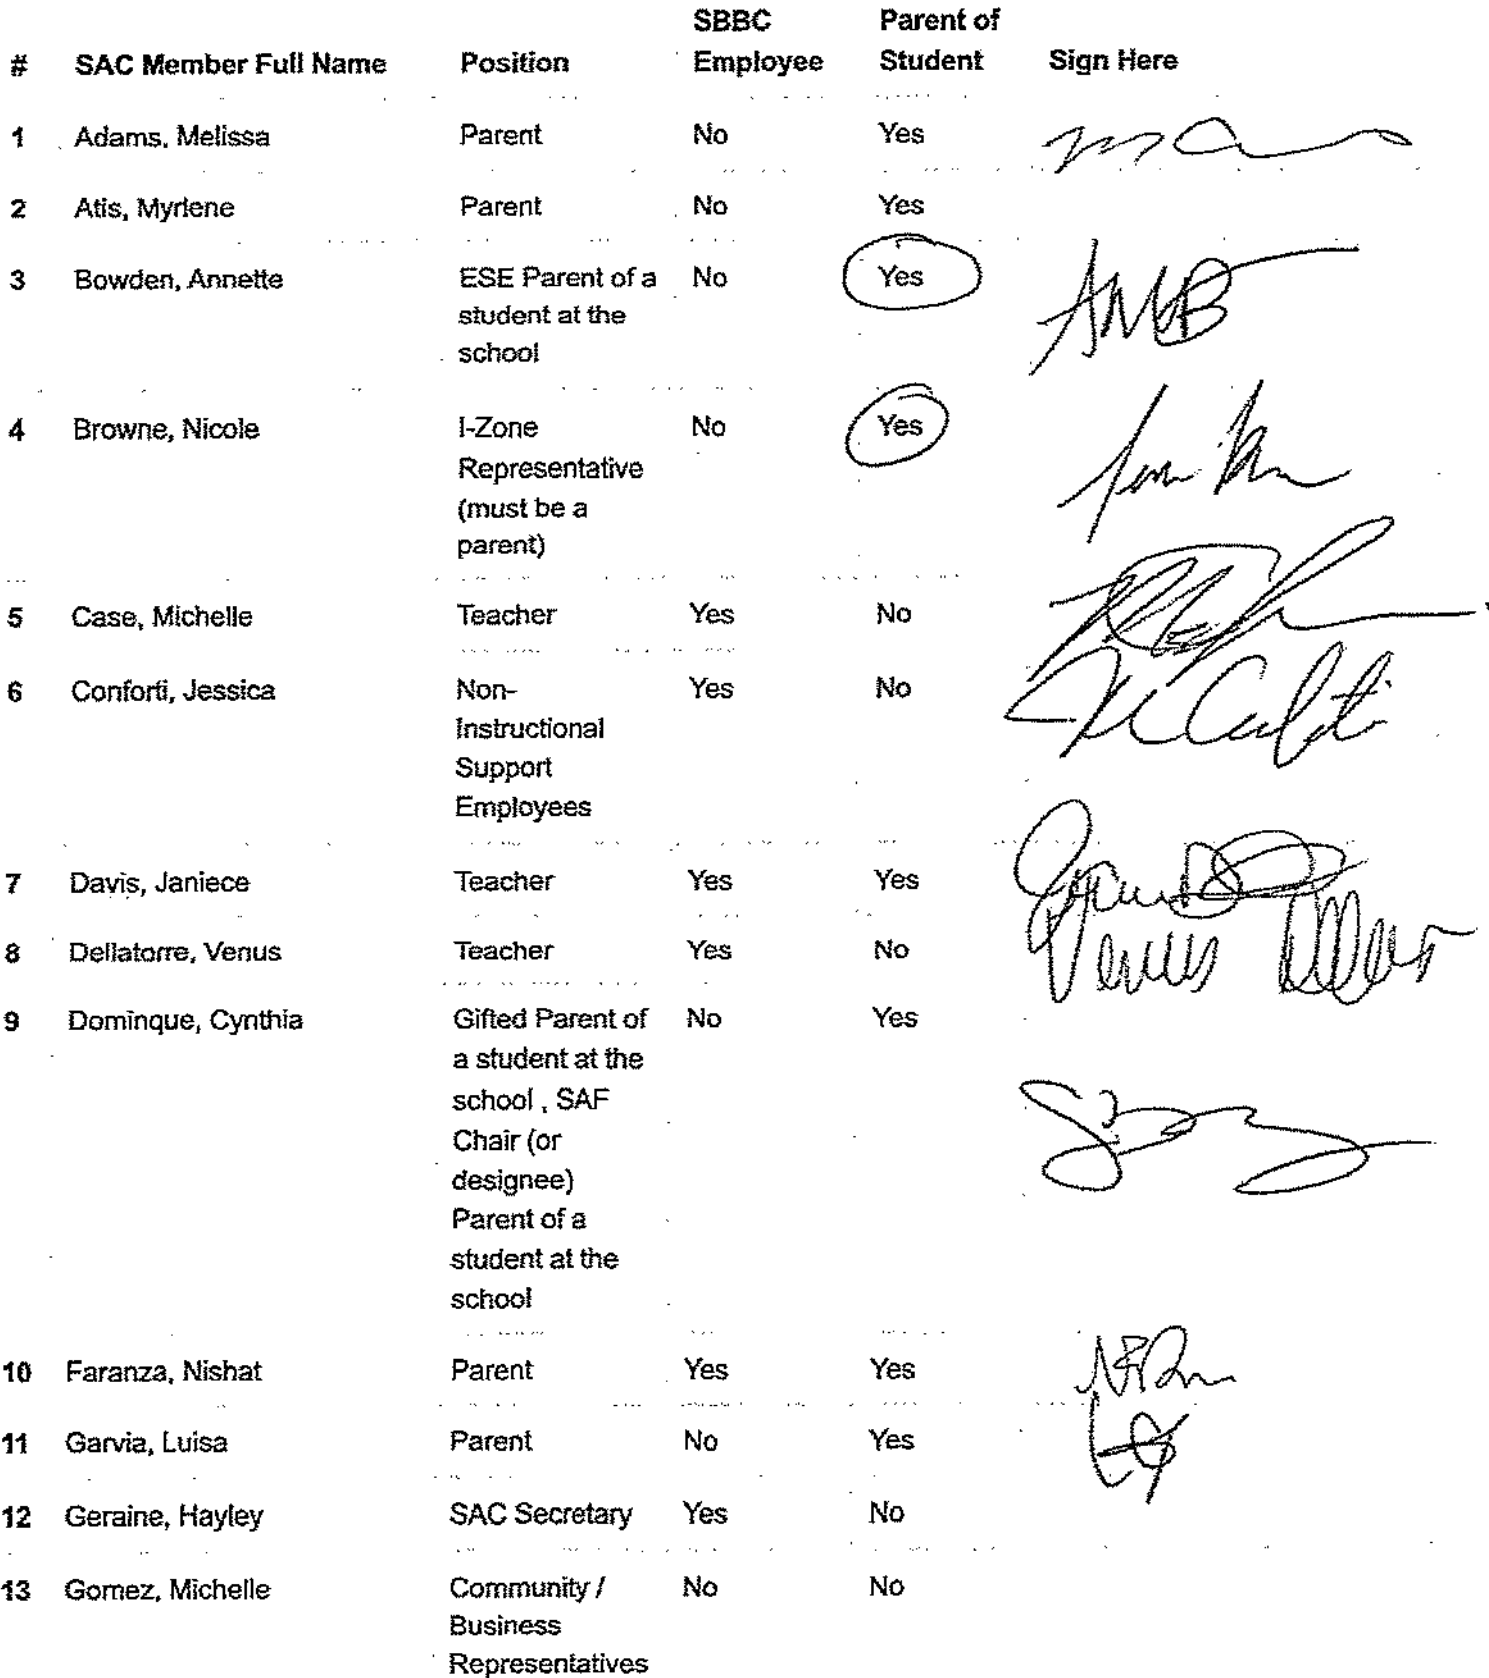 SBBC Parent of
# SAC Member Full Name Position Employee Student Sign Here
1 Adams, Melissa Parent No Yes
2 Atis, Myrlene Parent No Yes
3 Bowden, Annette ESE Parent of a No Yes
student at the
school
4 Browne, Nicole I-Zone No Yes
Representative
(must be a
parent)
5 Case, Michelle Teacher Yes No
6 Conforti, Jessica Non- Yes No
Instructional
Support
Employees
7 Davis, Janiece Teacher Yes Yes
8 Dellatorre, Venus Teacher Yes No Venus
9 Dominque, Cynthia Gifted Parent of No Yes
a student at the
school , SAF
Chair (or
designee)
Parent of a
student at the
school
10 Faranza, Nishat Parent Yes Yes
11 Garvia, Luisa Parent No Yes
12 Geraine, Hayley SAC Secretary Yes No
13 Gomez, Michelle Community / No No
Business
Representatives